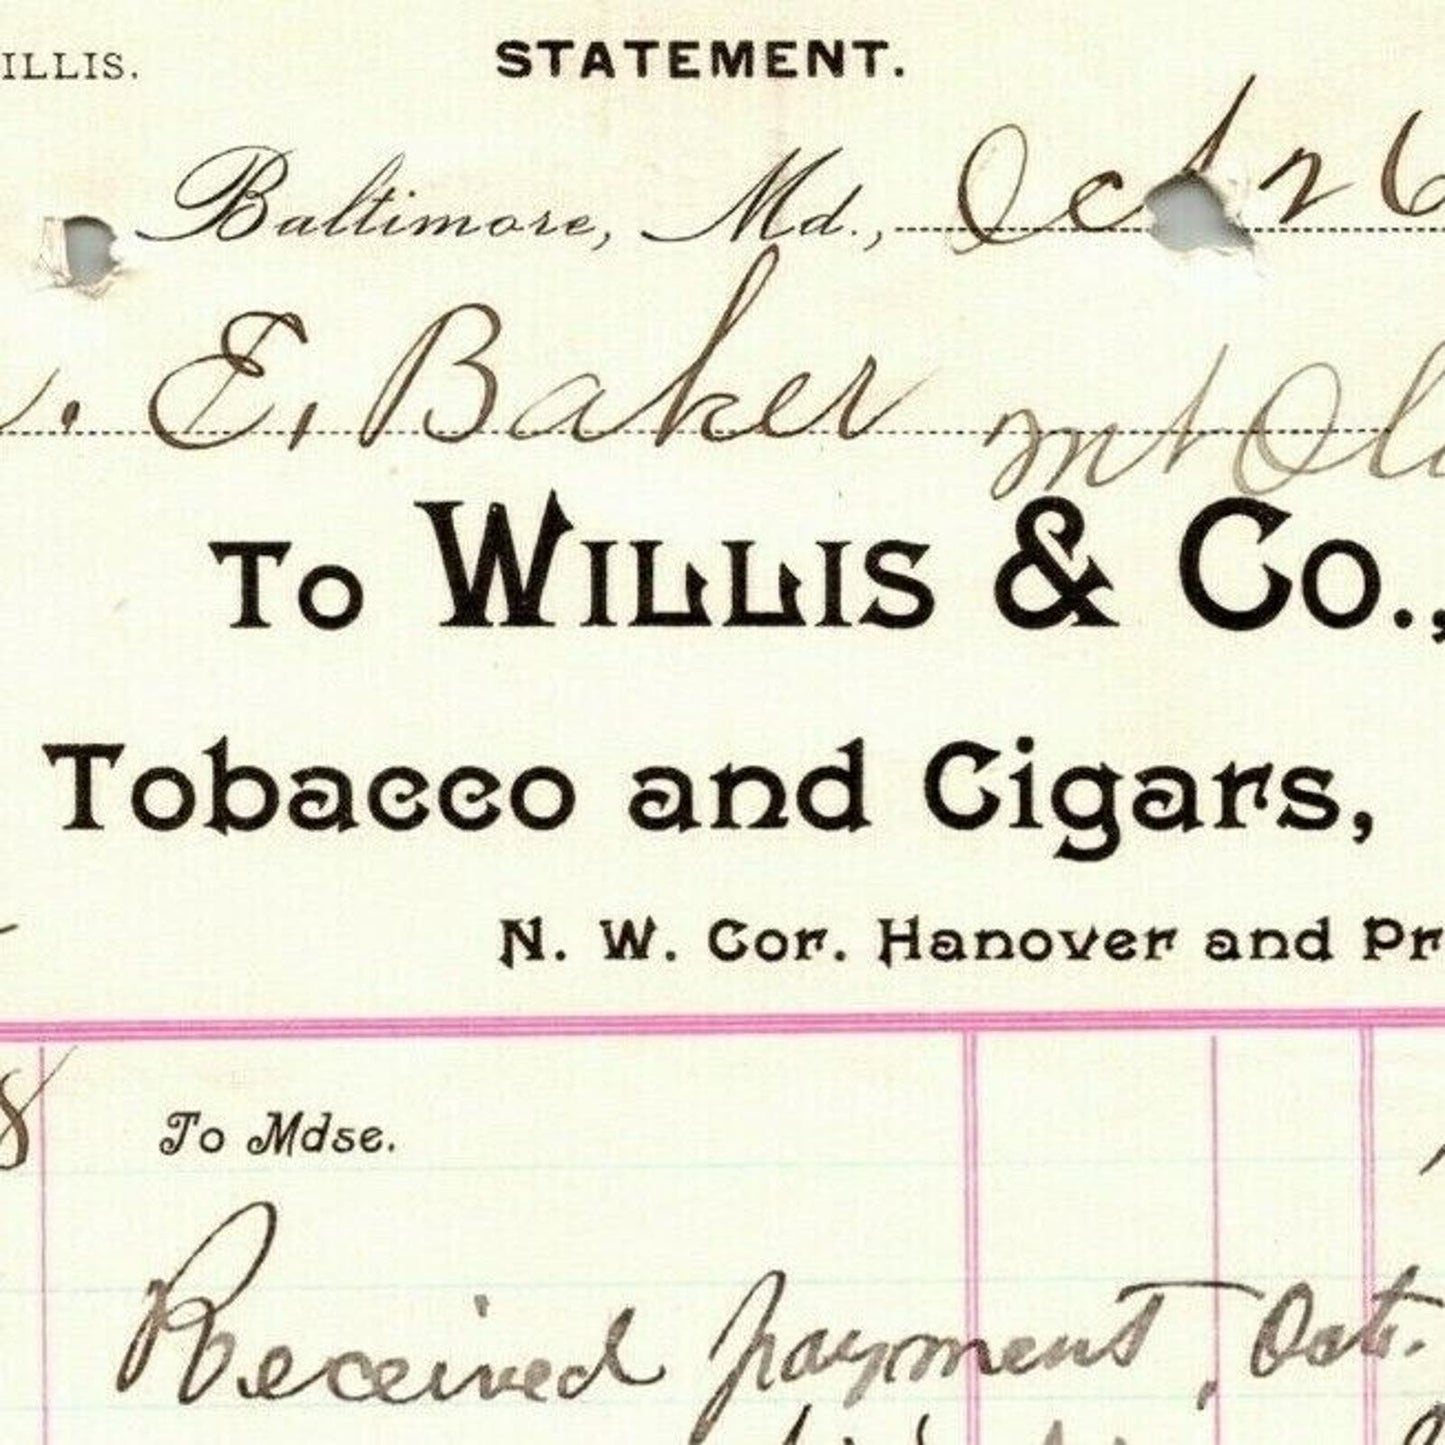 ILLIS.
STATEMENT.
Baltimore, Md., Oct 26
. E. Baker Mt Oli
To WILLIS & Co.,
Tobacco and Cigars,
N. W. Cor. Hanover and Pr
8
To Mdse.
Received payment, Oct.